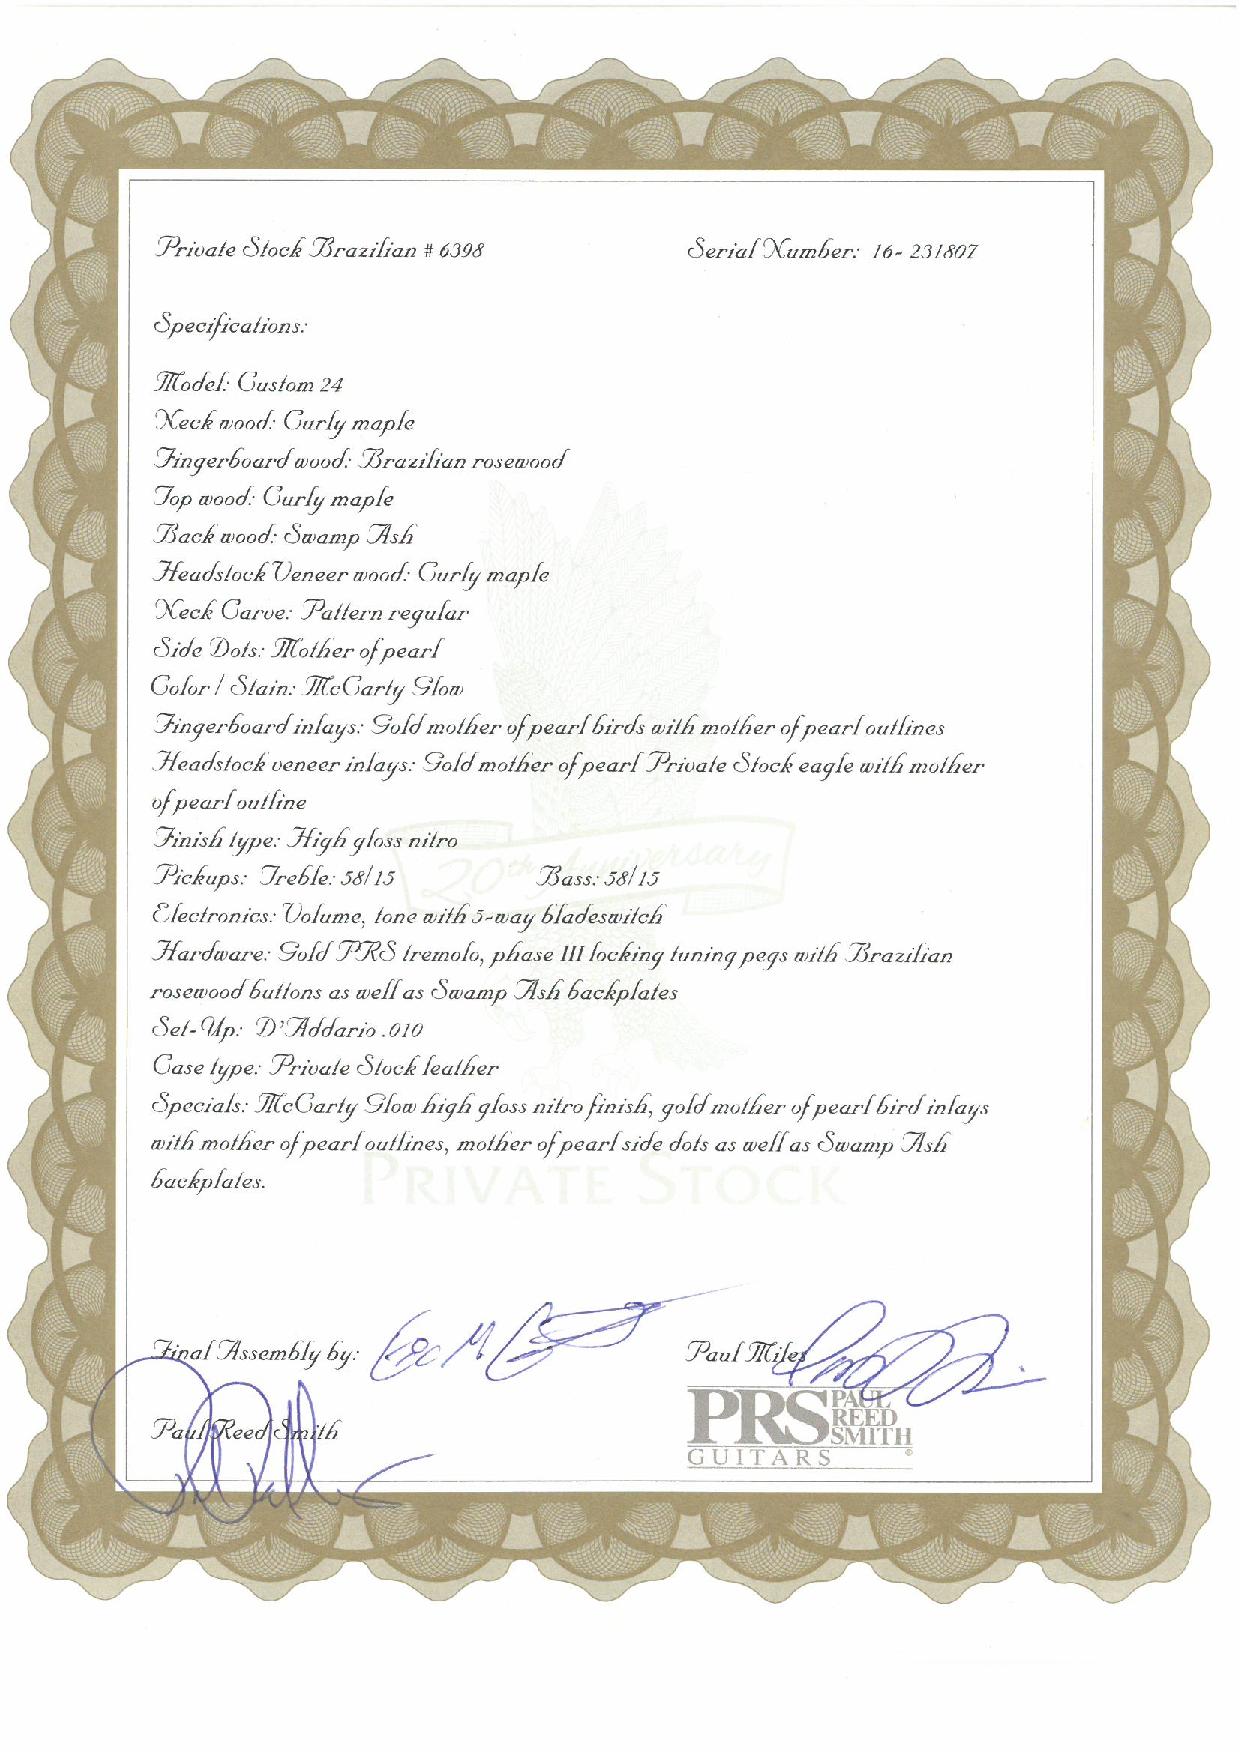 Private Stock Brazilian # 6398 Serial Number: 16- 231807
Specifications:
Model: Custom 24
Neck wood: Curly maple
Fingerboard wood: Brazilian rosewood
Top wood: Curly maple
Back wood: Swamp Ash
Headstock Veneer wood: Curly maple
Neck Carve: Pattern regular
Side Dots: Mother of pearl
Color / Stain: McCarty Glow
Fingerboard inlays: Gold mother of pearl birds with mother of pearl outlines
Headstock veneer inlays: Gold mother of pearl Private Stock eagle with mother
of pearl outline
Finish type: High gloss nitro
Pickups: Treble: 58/15 Bass: 58/15
20th Anniversary
Electronics: Volume, tone with 5-way bladeswitch
Hardware: Gold PRS tremolo, phase III locking tuning pegs with Brazilian
rosewood buttons as well as Swamp Ash backplates
Set-Up: D'Addario .010
Case type: Private Stock leather
Specials: McCarty Glow high gloss nitro finish, gold mother of pearl bird inlays
with mother of pearl outlines, mother of pearl side dots as well as Swamp Ash
backplates.
PRIVATE STOCK
Final Assembly by:
Paul Miles
Paul Reed Smith
PRS PAUL
REED
SMITH
GUITARS ®